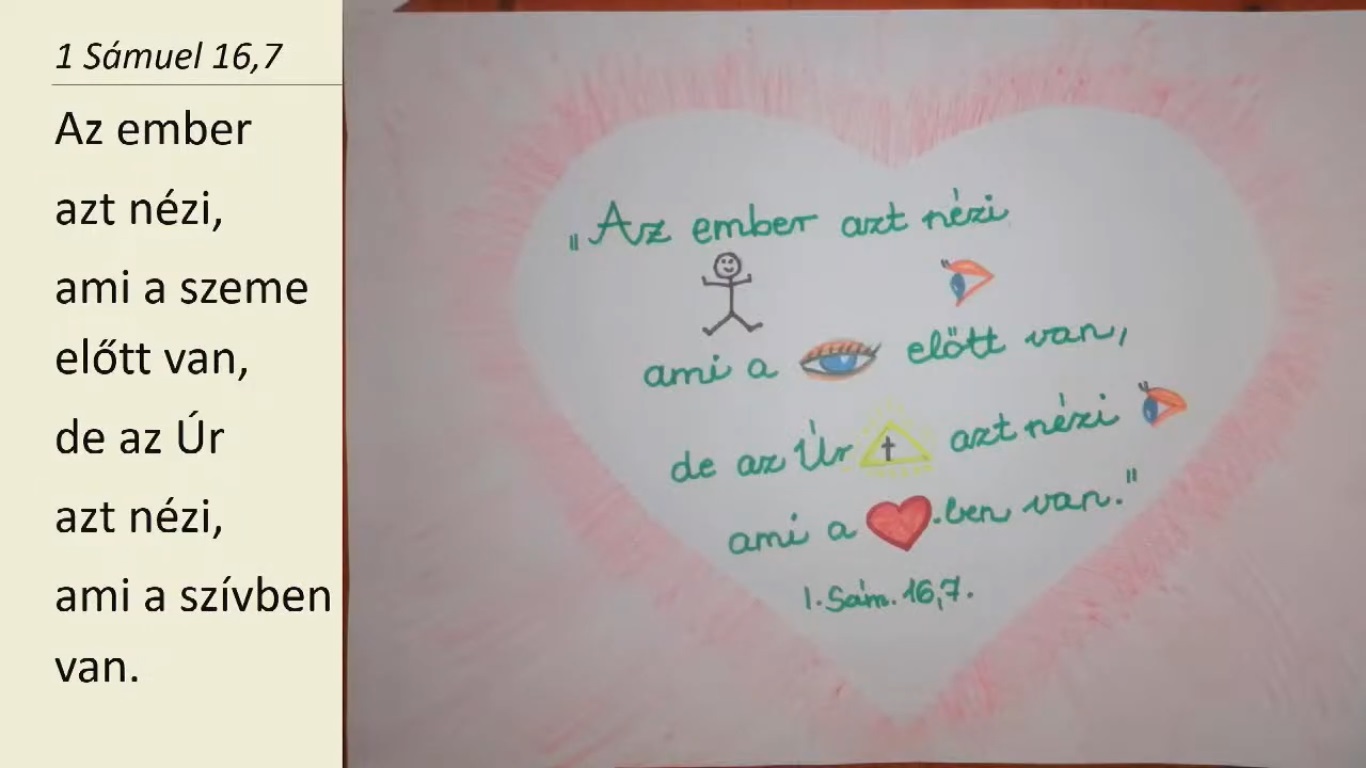 1 Sámuel 16,7
Az ember
azt nézi,
ami a szeme
előtt van,
de az Úr
azt nézi,
ami a szívben
van.
„Az ember azt nézi
ami a előtt van,
de az Úr azt nézi
ami a -ben van."
1. Sám. 16,7.